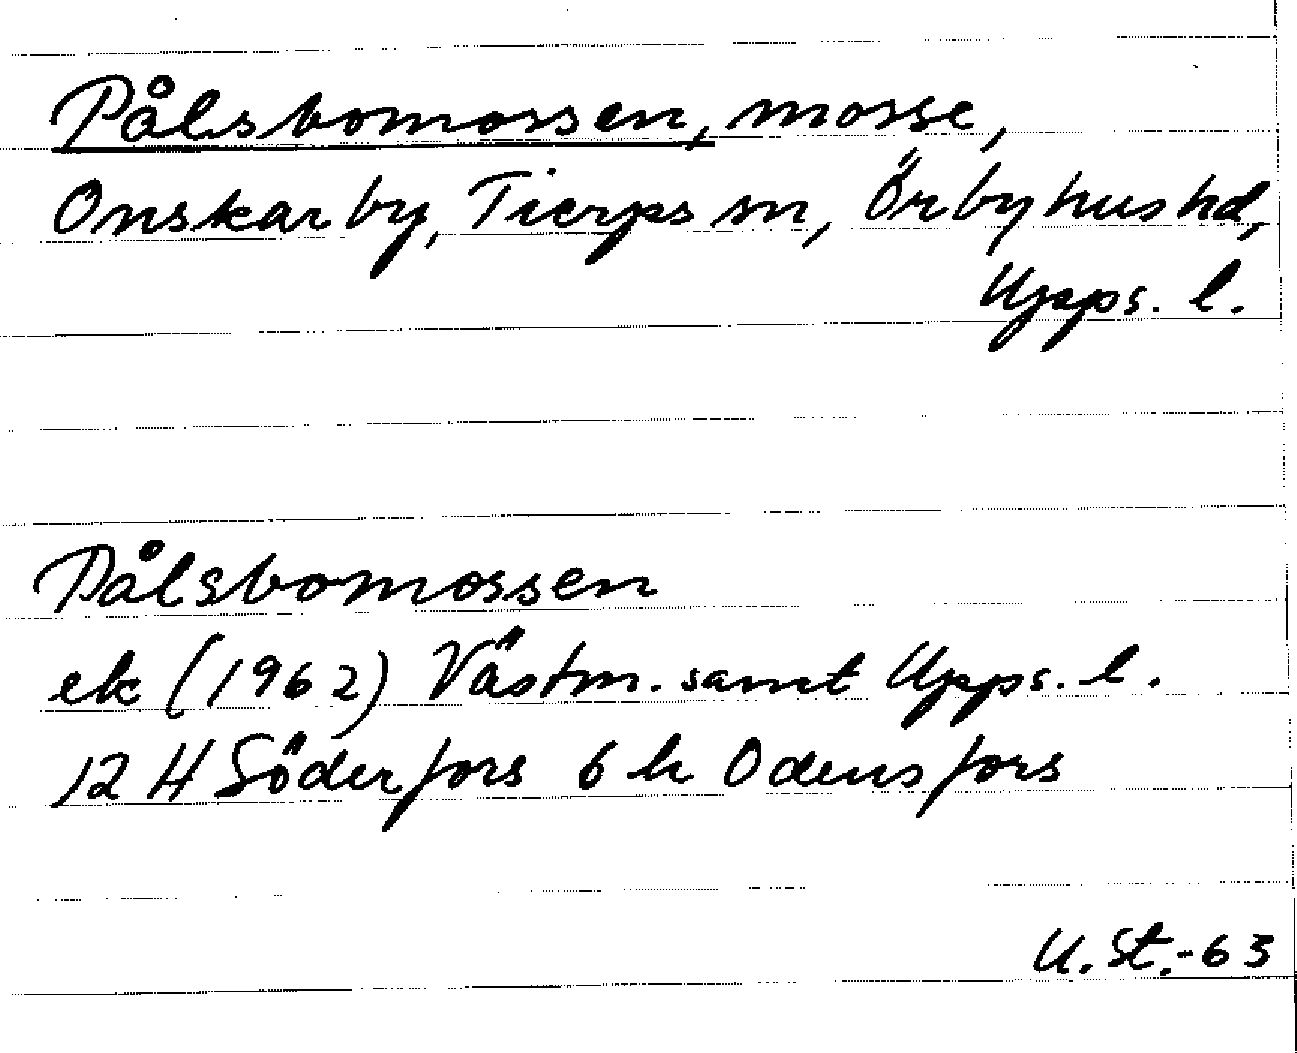 Pålsbomossen, mosse,
Onskarby, Tierps sn, Örbyhus hd,
Upps. l.
Pålsbomossen
ek (1962) Västm. samt Upps. l.
12 H Söderfors 6 h Odensfors
U. St.-63